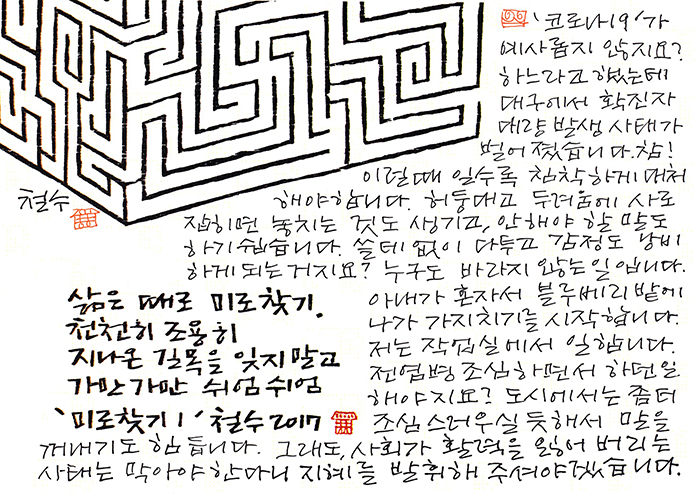 '코로나19'가
예사롭지 않지요?
하느라고 했는데
대구에서 확진자
대량 발생 사태가
벌어졌습니다. 참!
이럴때 일수록 침착하게 대처
해야합니다. 허둥대고 두려움에 사로
잡히면 놓치는 것도 생기고, 안해야 할 말도
하기 쉽습니다. 쓸데 없이 다투고 감정도 낭비
하게 되는거지요? 누구도 바라지 않는 일입니다.
아내가 혼자서 블루베리 밭에
나가 가지치기를 시작합니다.
저는 작업실에서 일합니다.
전염병 조심하면서 하던일
해야지요? 도시에서는 좀더
조심스러우실 듯해서 말을
꺼내기도 힘듭니다. 그래도, 사회가 활력을 잃어 버리는
사태는 막아야 한다니 지혜를 발휘해 주셔야겠습니다.
철수
삶은 때로 미로찾기.
천천히 조용히
지나온 길목을 잊지말고
가만가만 쉬엄쉬엄
'미로찾기1' 철수 2017